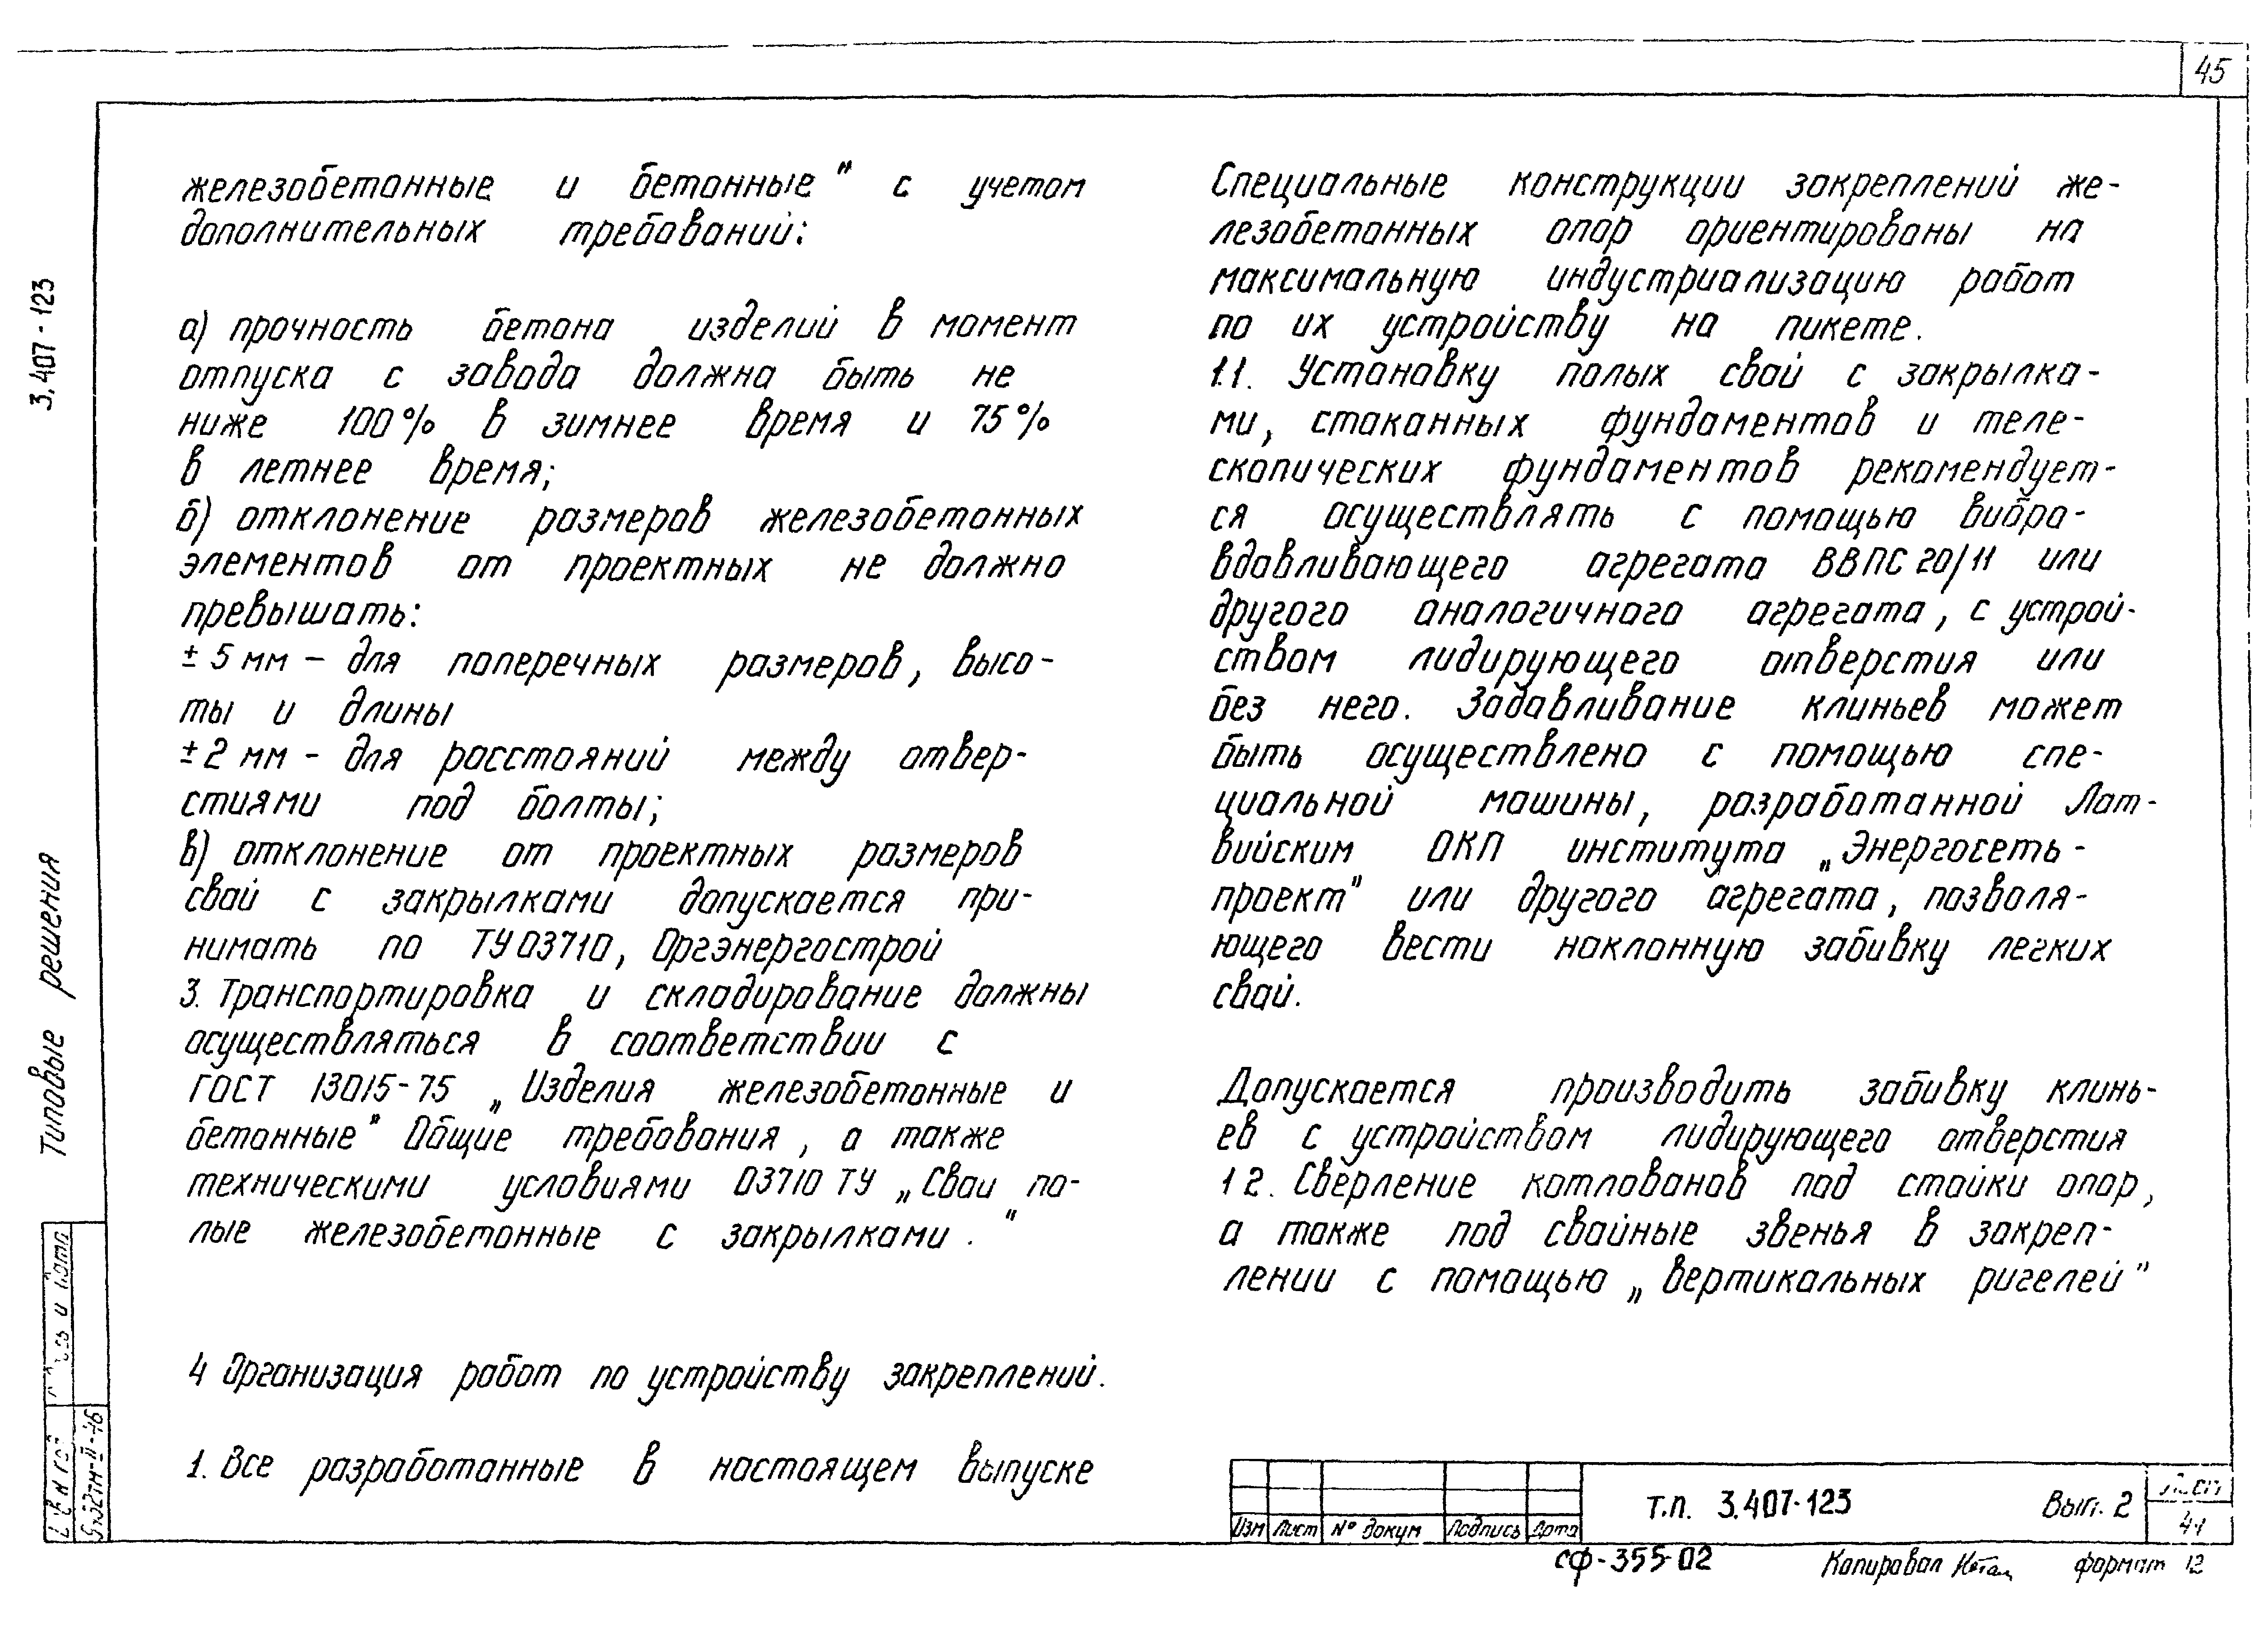 45
железобетонные и бетонные" с учетом
дополнительных требований:
а) прочность бетона изделий в момент
отпуска с завода должна быть не
ниже 100% в зимнее время и 75%
в летнее время;
б) отклонение размеров железобетонных
элементов от проектных не должно
превышать:
± 5 мм – для поперечных размеров, высо-
ты и длины
± 2 мм – для расстояний между отвер-
стиями под болты;
в) отклонение от проектных размеров
свай с закрылками допускается при-
нимать по ТУ 03710, Оргэнергострой
3. Транспортировка и складирование должны
осуществляться в соответствии с
ГОСТ 13015-75 „Изделия железобетонные и
бетонные" Общие требования, а также
техническими условиями 03710 ТУ „Сваи по-
лые железобетонные с закрылками."
4 Организация работ по устройству закреплений.
1. Все разработанные в настоящем выпуске
Специальные конструкции закреплений же-
лезобетонных опор ориентированы на
максимальную индустриализацию работ
по их устройству на пикете.
1.1. Установку полых свай с закрылка-
ми, стаканных фундаментов и теле-
скопических фундаментов рекомендует-
ся осуществлять с помощью вибро-
вдавливающего агрегата ВВПС 20/11 или
другого аналогичного агрегата, с устрой-
ством лидирующего отверстия или
без него. Задавливание клиньев может
быть осуществлено с помощью спе-
циальной машины, разработанной Лат-
вийским ОКП института „Энергосеть-
проект" или другого агрегата, позволя-
ющего вести наклонную забивку легких
свай.
Допускается производить забивку клинь-
ев с устройством лидирующего отверстия
1 2. Сверление котлованов под стойки опор,
а также под свайные звенья в закреп-
лении с помощью „вертикальных ригелей"
3.407-123
Типовые решения
Изм Лист № докум Подпись Дата
т.п. 3.407-123 Вып. 2
Лист
СФ-355-02 Копировал формат 12